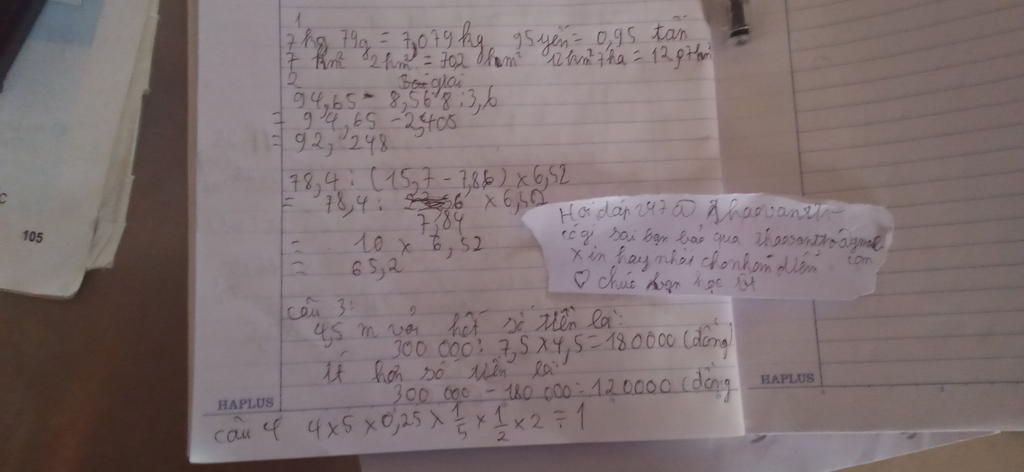 1
7kg 79g = 7,079kg 95 yến = 0,95 tấn
7 km² 2hm² = 702 hm² 12km² 7ha = 12,07km²
2
Bài giải
94,65 - 8,568 : 3,6
= 94,65 - 2,405
= 92,248
78,4 : (15,7 - 7,86) x 6,52
= 78,4 : 7,84 x 6,52
= 10 x 6,52
= 65,2
câu 3:
4,5 m vải hết số tiền là:
300 000 : 7,5 x 4,5 = 180000 (đồng)
ít hơn số tiền là
300 000 - 180 000 = 120000 (đồng
câu 4 4 x 5 x 0,25 x 1/5 x 1/2 x 2 = 1
Hỏi đáp 247 @
có gì sai bạn báo qua
xin hay nhất cho nhóm điểm
♡ chúc bạn học tốt
HAPLUS
HAPLUS
105
C